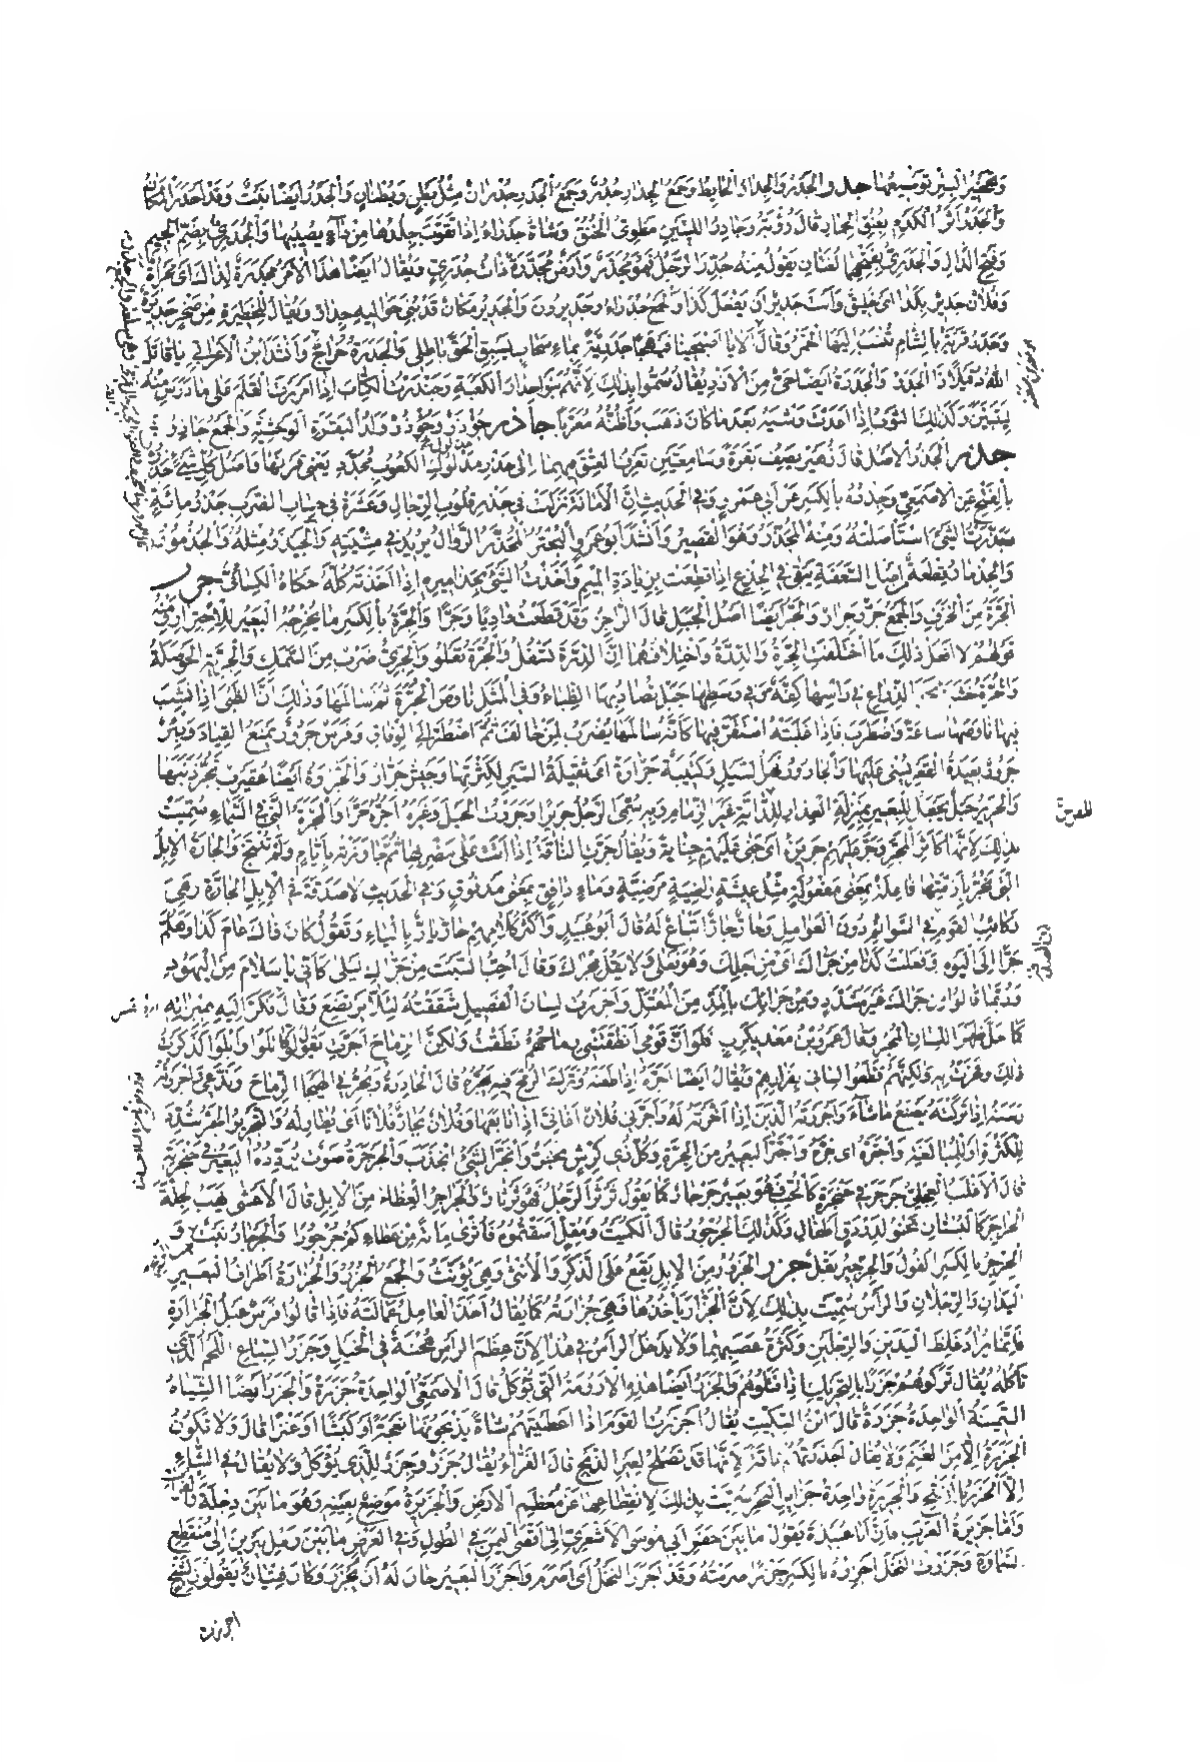 وتجحير البئر توسيعها جدر والجدر والجدار الحائط وجمع الجدار جدر وجمع الجدر جدران مثل بطن وبطنان والجدر ايضا نبت وقد اجدر المكان
والجدر اثر الكدم بعنق الحمار قال رؤبة وجادر الليتين مطوي الحنق وشاة جدراء اذا تقوب جلدها من داء يصيبها والجدري بضم الجيم
وفتح الدال والجدري بفتحهما لغتان تقول منه جدر الرجل فهو مجدر وارض مجدرة ذات جدري ويقال ايضا هذا الامر مجدرة لذاك اي محراة
وفلان جدير بكذا اي خليق وانت جدير ان تفعل كذا والجمع جدراء وجديرون والجدير مكان قد بني حواليه جدار ويقال للحظيرة من صخر جديرة
وجدر قرية بالشام تنسب اليها الخمر وقال الا يا اصبحينا فيهجا جدرية بماء سحاب يسبق الحق باطلي والجدرة خراج وانشد ابن الاعرابي يا قاتل
الله دقيلا ذا الجدر والجدرة ايضا حي من الازد يقال سموا بذلك لانهم بنوا جدار الكعبة وجندرت الكتاب اذا امررت القلم على ما درس منه
ليتبين وكذلك الثوب اذا اعدت وشيه بعد ما كان ذهب واظنه معربا جأذر جؤذر وجؤذر ولد البقرة الوحشية والجمع جآذر
جذر الجذر الاصل قال زهير يصف بقرة وسامعتين تعرف العتق فيهما الى جذر مدلوك الكعوب محدد يعني قرنها واصل كل شيء جذره
بالفتح عن الاصمعي وجذره بالكسر عن ابي عمرو وفي الحديث ان الامانة نزلت في جذر قلوب الرجال وعشرة في حساب الضرب جذر مائة
جذرت الشيء استأصلته ومنه المجذر وهو القصير وانشد ابو عمرو البحتر المجذر الزوال يريد في مشيته والجيذر مثله والجذمور
والجذمار قطعة من اصل السعفة تبقى في الجذع اذا قطعت بزيادة الميم واخذت الشيء بجذاميره اذا اخذته كله حكاه الكسائي جرر
الجرة من الخزف والجمع جر وجرار والجر ايضا اصل الجبل قال الراجز وقد قطعت واديا وجرا والجرة بالكسر ما يخرجه البعير للاجترار ومنه
قولهم لا افعل ذلك ما اختلفت الجرة والدرة واختلافهما ان الدرة تسفل والجرة تعلو والجري ضرب من السمك والجرية الحوصلة
والجرة خشبة نحو الذراع في رأسها كفة وفي وسطها حبل يصاد بها الظباء وفي المثل ناوص الجرة ثم سالمها وذلك ان الظبي اذا نشب
فيها ناوصها ساعة واضطرب فاذا غلبته استقر فيها كانه سالمها يضرب لمن خالف ثم اضطر الى الوفاق وفرس جرور يمنع القياد وبئر
جرور بعيدة القعر يسنى عليها والجار ودفعل السيل وكتيبة جرارة اي ثقيلة السير لكثرتها وجيش جرار والجرارة ايضا عقيرب تجرر ذنبها
والجرير حبل يجعل للبعير بمنزلة العذار للدابة غير الزمام وبه سمي الرجل جريرا وجررت الحبل وغيره اجره جرا والمجرة التي في السماء سميت
بذلك لانها كاثر المجر وجر عليهم جريرة اي جنى عليهم جناية ويقال جرت الناقة اذا اتت على مضربها ثم جاوزته بايام ولم تنتج والجارة الابل
التي تجر بازمتها فاعلة بمعنى مفعولة مثل عيشة راضية مرضية وماء دافق بمعنى مدفوق وفي الحديث لا صدقة في الابل الجارة وهي
ركائب القوم في السوائم دون العوامل وحار جار اتباع له قال ابو عبيد واكثر كلامهم حار يار بالياء وتقول كان ذاك عام كذا وهلم
جرا الى اليوم وفعلت كذا من جراك اي من اجلك وهو فعلى ولا يقل مجراك وقال احب السبت من جراك ليلى كاني يا سلام من اليهود
وربما قالوا من جراك غير مشدد ومن جرائك بالمد من المعتل واجررت لسان الفصيل شققته لئلا يرتضع وقال فكر اليه بمبراته
كما خل ظهر اللسان المجر وقال عمرو بن معديكرب فلو ان قومي انطقتني رماحهم نطقت ولكن الرماح اجرت يقول لو قاتلوا وابلوا لذكرت
ذلك وفخرت به ولكنهم قطعوا لساني بفرارهم ويقال ايضا اجره اذا طعنه وترك الرمح فيه يجره قال الحادرة ونجر في الهيجا الرماح وندعي واجررته
رسنه اذا تركته يصنع ما شاء واجررته الدين اذا اخرته له واجرني فلان اغاني اذا تابعها وفلان يجار فلانا اي يطاوله والتجرير الجر شدد
للكثرة او للمبالغة واجتره اي جره واجتر البعير من الجرة وكل ذي كرش يجتر وانجر الشيء انجذب والجرجرة صوت يردده البعير في حنجرته
قال الاغلب العجلي جرجر في حنجرة كالحب فهو بعير جرجار كما يقول ثرثر الرجل فهو ثرثار والجراجر العظام من الابل قال الاعشى يهب الجلة
الجراجر كالبستان تحنو لدردق اطفال وكذلك الجرجور قال الكميت ومقل اسقتموه فاثرى مائة من عطائكم جرجورا والجرجار نبت و
الجرجر بالكسر الفول والجرجير بقل جزر الجزور من الابل يقع على الذكر والانثى وهي تؤنث والجمع الجزر والجزارة اطراف البعير
اليدان والرجلان والرأس سميت بذلك لان الجزار يأخذها فهي جزارته كما يقال اخذ العامل عمالته فاذا قالوا فرس عبل الجزارة
فانما يراد غلظ اليدين والرجلين وكثرة عصبهما ولا يدخل الرأس في هذا لان عظم الرأس هجنة في الخيل وجزر السباع اللحم الذي
تأكله يقال تركوهم جزرا بالتحريك اذا قتلوهم والجزر ايضا هذه الارومة التي تؤكل قال الاصمعي الواحدة جزرة والجزر ايضا الشياه
السمينة الواحدة جزرة قال ابن السكيت يقال اجزرت القوم اذا اعطيتهم شاة يذبحونها نعجة او كبشا او عنزا قال ولا تكون
الجزرة الا من الغنم ولا يقال اجزرتهم ناقة لانها قد تصلح لغير الذبح قال الفراء يقال جزر وجزر للذي يؤكل ولا يقال في الشاء
الا الجزر بالفتح والجزيرة واحدة جزائر البحر سميت بذلك لانقطاعها عن معظم الارض والجزيرة موضع بعينه وهو ما بين دجلة والفرات
واما جزيرة العرب فان ابا عبيدة يقول ما بين حفر ابي موسى الاشعري الى اقصى اليمن في الطول وفي العرض ما بين رمل يبرين الى منقطع
السماوة وجزرت النخل اجزره بالكسر جزرا صرمته وقد اجزر النخل اي اصرم واجزر البعير حان له ان يجزر وكان فتيان يقولون لشيخ
اجزرت